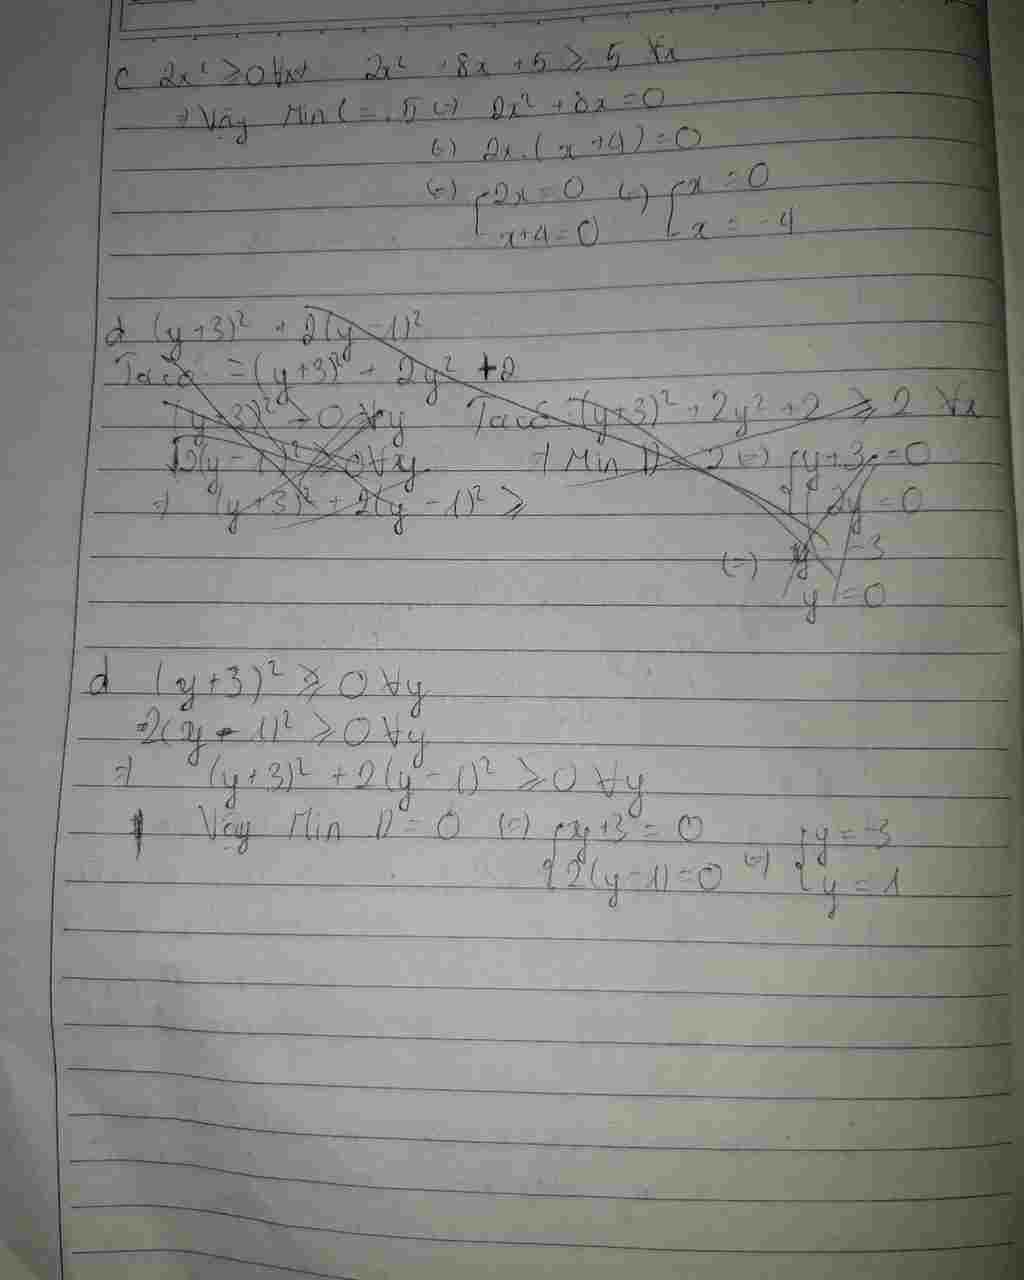 c 2x² ≥ 0 ∀x 2x² + 8x + 5 ≥ 5 ∀x
⇒ Vậy Min C = 5 (=) 2x² + 8x = 0
(=) 2x.(x+4) = 0
(=) [2x = 0 (=) [x = 0
x+4 = 0 x = -4
d (y+3)² + 2(y-1)²
Ta có = (y+3)² + 2y² + 2
(y+3)² ≥ 0 ∀y Ta có (y+3)² + 2y² + 2 ≥ 2 ∀x
2(y-1)² ≥ 0 ∀y ⇒ Min D = 2 (=) {y+3 = 0
⇒ (y+3)² + 2(y-1)² ≥ 2y = 0
(=) y = -3
y = 0
d (y+3)² ≥ 0 ∀y
2(y-1)² ≥ 0 ∀y
⇒ (y+3)² + 2(y-1)² ≥ 0 ∀y
Vậy Min D = 0 (=) {y+3 = 0 {y = -3
2(y-1) = 0 (=) y = 1